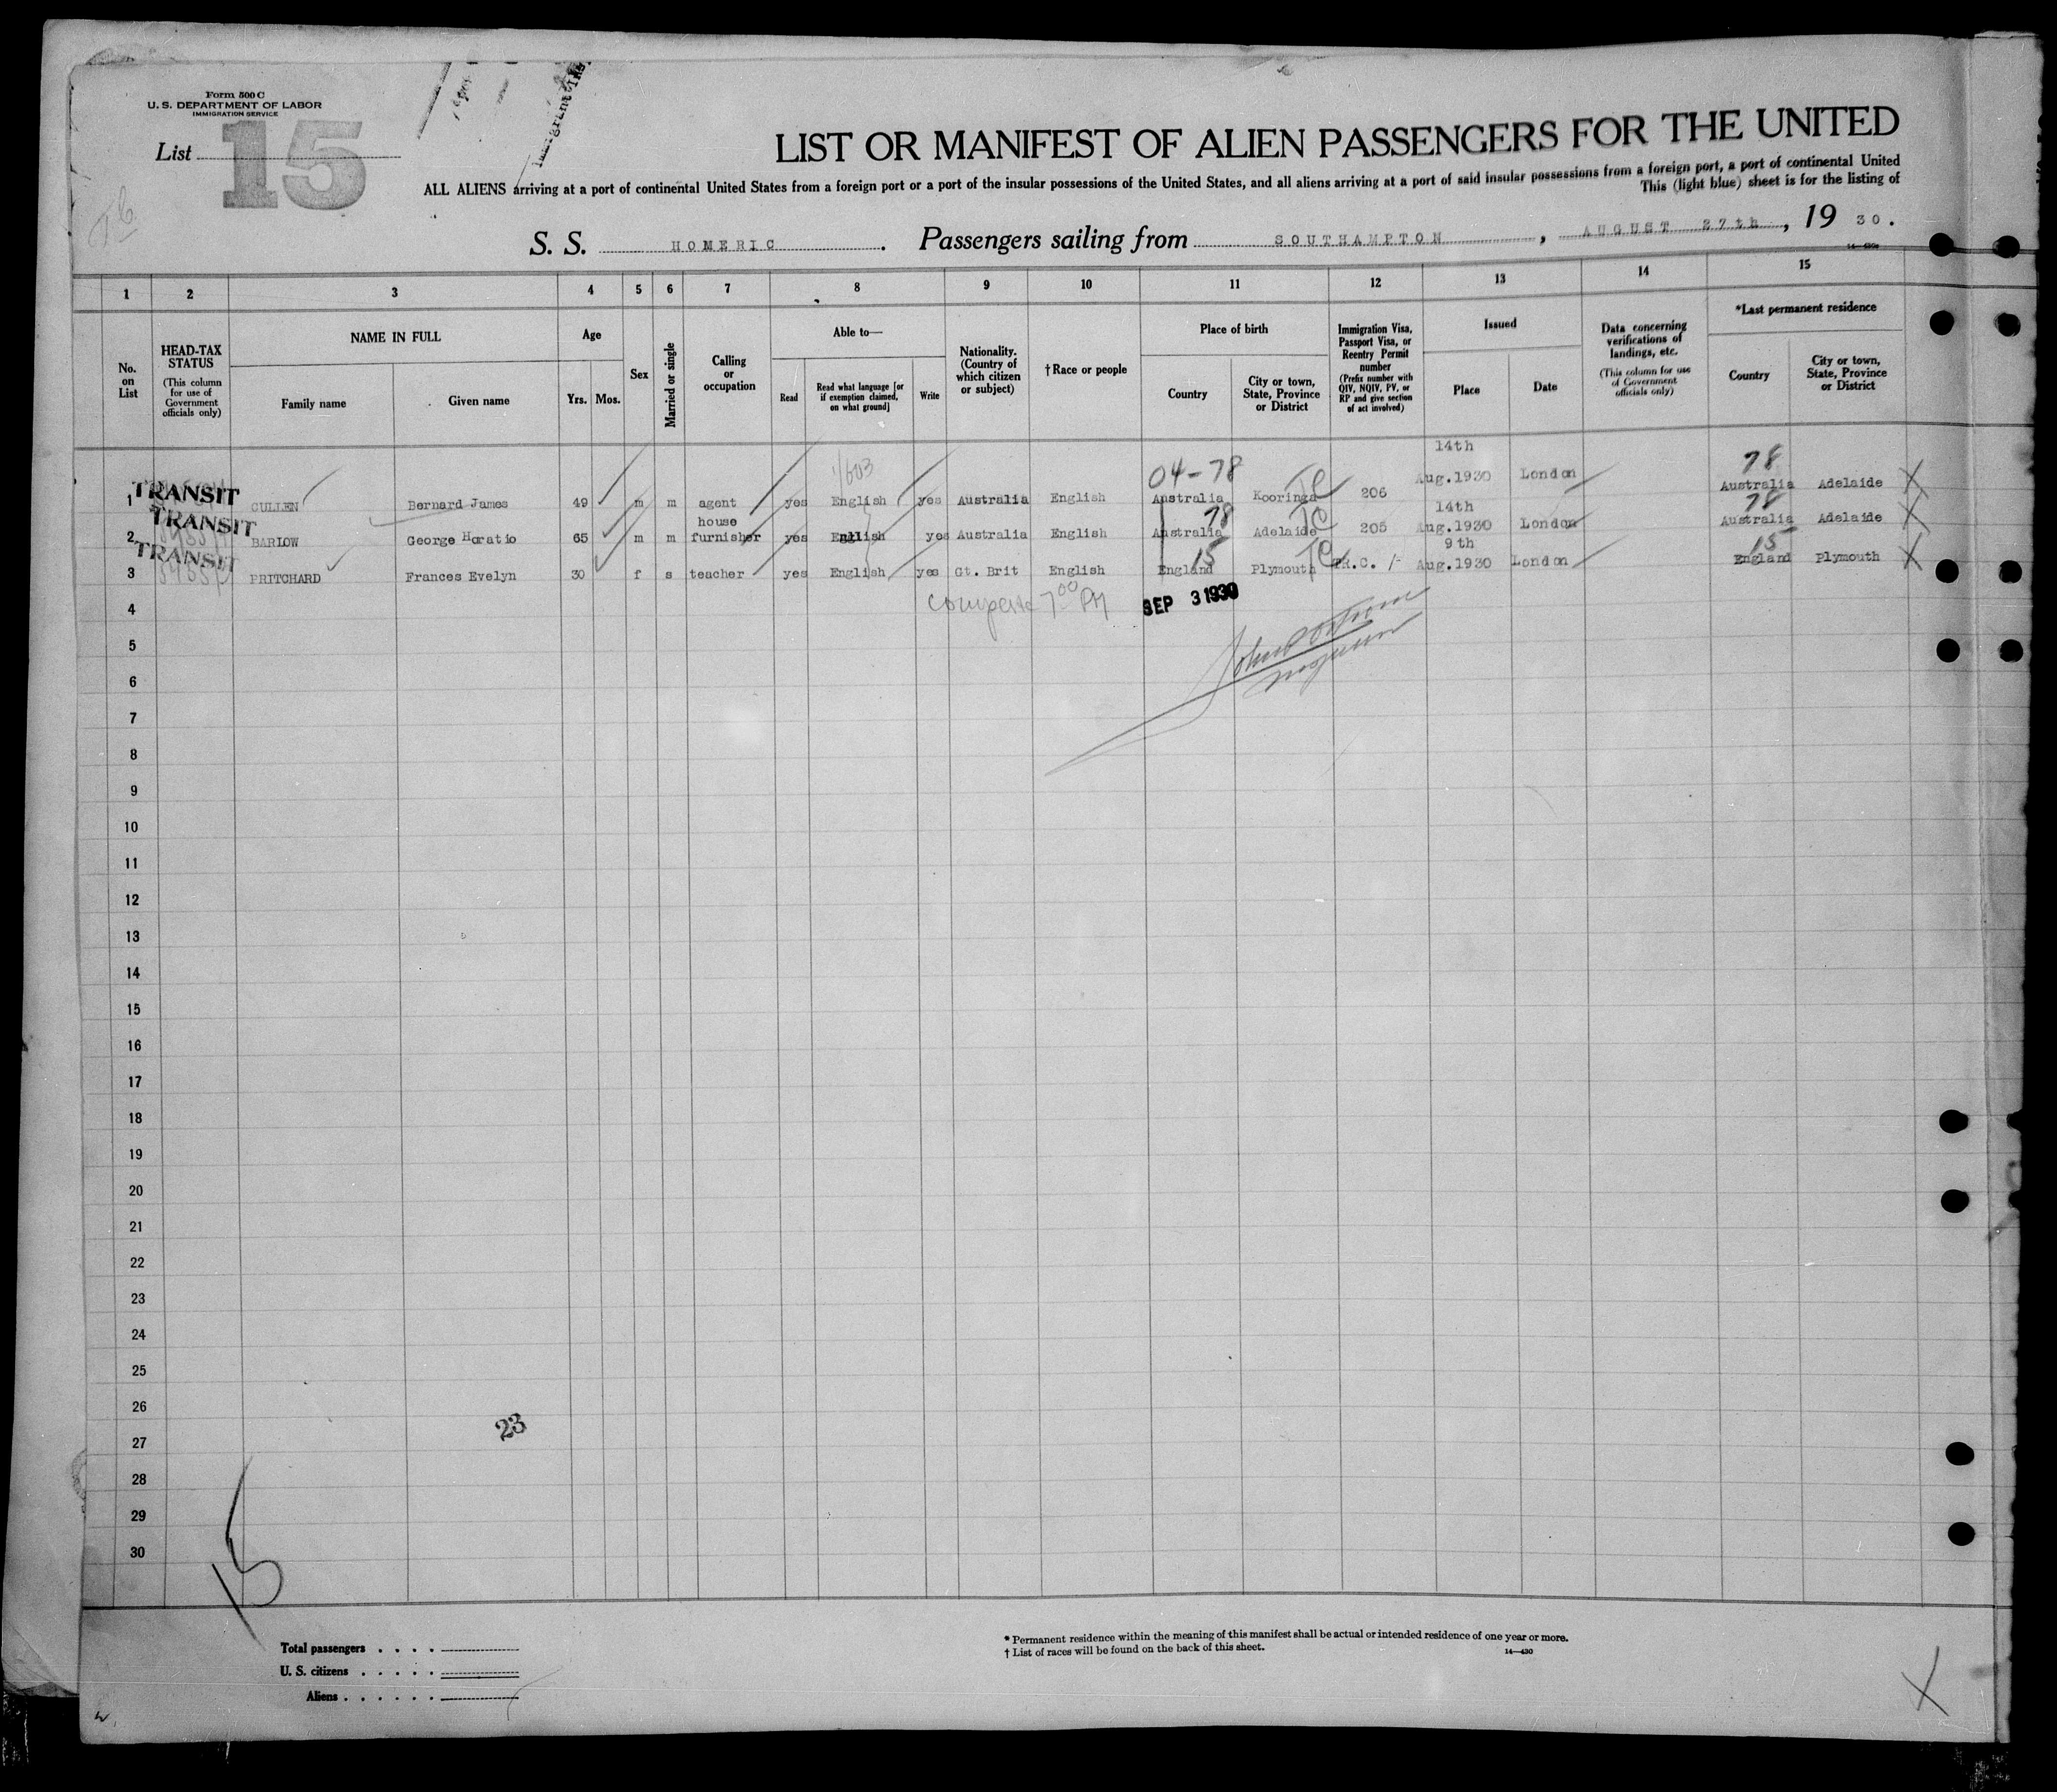 Form 500 C
U. S. DEPARTMENT OF LABOR
IMMIGRATION SERVICE
List 15
LIST OR MANIFEST OF ALIEN PASSENGERS FOR THE UNITED
ALL ALIENS arriving at a port of continental United States from a foreign port or a port of the insular possessions of the United States, and all aliens arriving at a port of said insular possessions from a foreign port, a port of continental United
This (light blue) sheet is for the listing of
S. S. HOMERIC. Passengers sailing from SOUTHAMPTON, AUGUST 27th, 19 30.
14—430
1 2 3 4 5 6 7 8 9 10 11 12 13 14 15
No. on List
HEAD-TAX STATUS
(This column for use of Government officials only)
NAME IN FULL
Family name
Given name
Age
Yrs. Mos.
Sex
Married or single
Calling or occupation
Able to—
Read
Read what language [or if exemption claimed, on what ground]
Write
Nationality. (Country of which citizen or subject)
†Race or people
Place of birth
Country
City or town, State, Province or District
Immigration Visa, Passport Visa, or Reentry Permit number
(Prefix number with QIV, NQIV, PV, or RP and give section of act involved)
Issued
Place
Date
Data concerning verifications of landings, etc.
(This column for use of Government officials only)
*Last permanent residence
Country
City or town, State, Province or District
14th
04-78 78
1 TRANSIT CULLEN Bernard James 49 m m agent yes English yes Australia English Australia Kooringa 206 Aug.1930 London Australia Adelaide X
house 78 14th 78
2 TRANSIT BARLOW George Horatio 65 m m furnisher yes English yes Australia English Australia Adelaide 205 Aug.1930 London Australia Adelaide X
15 9th 15
3 TRANSIT PRITCHARD Frances Evelyn 30 f s teacher yes English yes Gt. Brit English England Plymouth Aug.1930 London England Plymouth X
4 7 00 PM SEP 3 1930
5
6
7
8
9
10
11
12
13
14
15
16
17
18
19
20
21
22
23
24
25
26
23
27
28
29
30
15
Total passengers . . . .
U. S. citizens . . . . .
Aliens . . . . . .
* Permanent residence within the meaning of this manifest shall be actual or intended residence of one year or more.
† List of races will be found on the back of this sheet.
14—430
X